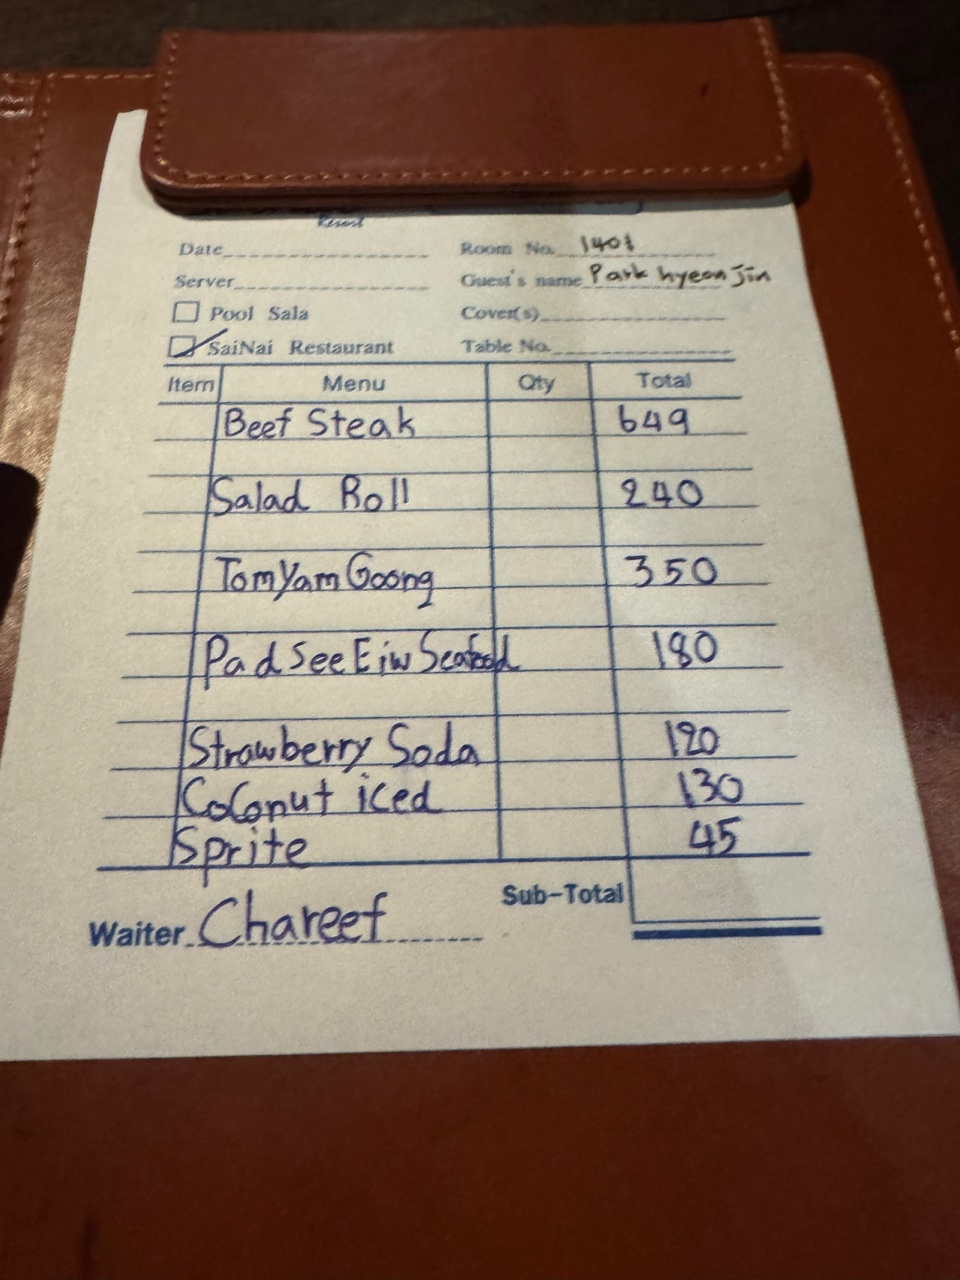 Resort
Date Room No. 1401
Server Guest's name Park hyeon Jin
Pool Sala Cover(s)
SaiNai Restaurant Table No.
Item Menu Qty Total
Beef Steak 649
Salad Roll 240
TomYam Goong 350
Pad See Eiw Seafood 180
Strawberry Soda 120
Coconut iced 130
Sprite 45
Sub-Total
Waiter Chareef